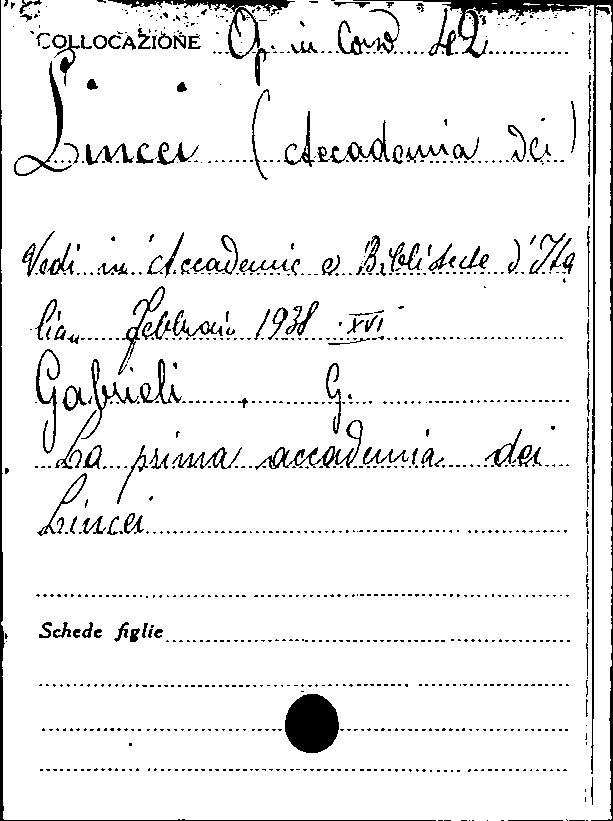 COLLOCAZIONE Op. in Corso 42
Lincei (Accademia dei)
Vedi in Accademie e Biblioteche d'Ita
lia„ Febbraio 1938 XVI
Gabrieli, G.
La prima accademia dei
Lincei
Schede figlie